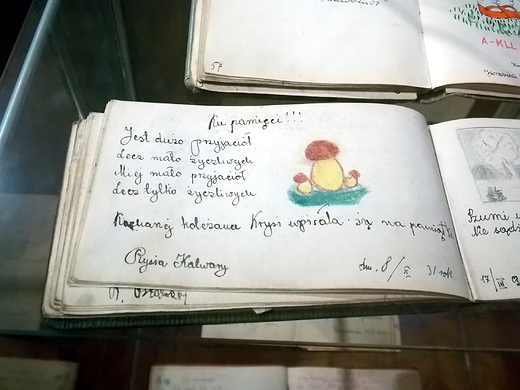 57
A-KLL
Ku pamięci!!!
Jest dużo przyjaciół
Lecz mało życzliwych
Miej mało przyjaciół
Lecz tylko życzliwych
Kochanej koleżance Krysi wpisała się na pamiątkę
Rysia Kalwary
dn. 8/XI 31 rok
17/III